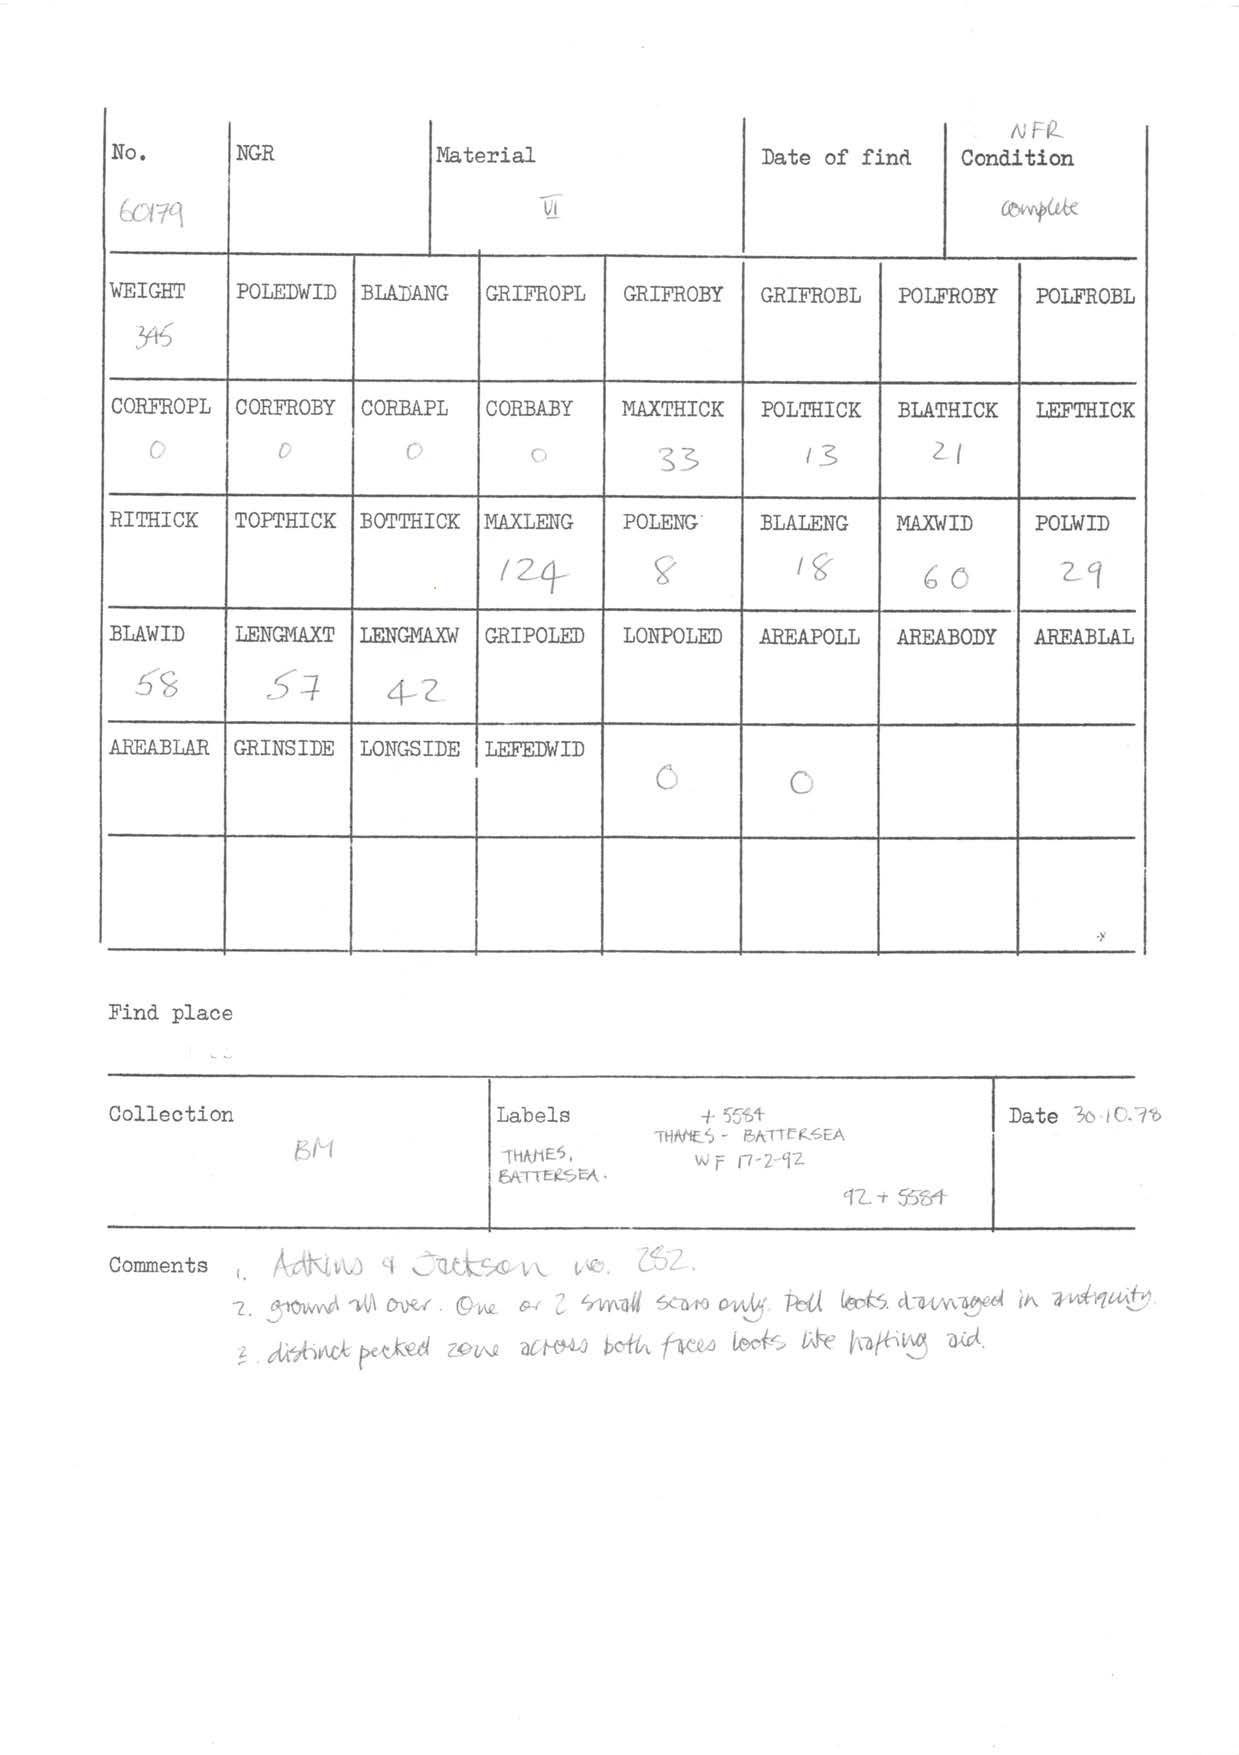 NFR
No. NGR Material Date of find Condition
60179 VI complete
WEIGHT POLEDWID BLADANG GRIFROPL GRIFROBY GRIFROBL POLFROBY POLFROBL
345
CORFROPL CORFROBY CORBAPL CORBABY MAXTHICK POLTHICK BLATHICK LEFTHICK
0 0 0 0 33 13 21
RITHICK TOPTHICK BOTTHICK MAXLENG POLENG BLALENG MAXWID POLWID
124 8 18 60 29
BLAWID LENGMAXT LENGMAXW GRIPOLED LONPOLED AREAPOLL AREABODY AREABLAL
58 57 42
AREABLAR GRINSIDE LONGSIDE LEFEDWID
0 0
Find place
Collection Labels + 5584 Date 30.10.78
BM THAMES, THAMES - BATTERSEA
BATTERSEA. WF 17-2-92
92 + 5584
Comments 1. Adkins & Jackson no. 282.
2. ground all over. One or 2 small scars only. Poll looks damaged in antiquity.
3. distinct pecked zone across both faces looks like hafting aid.